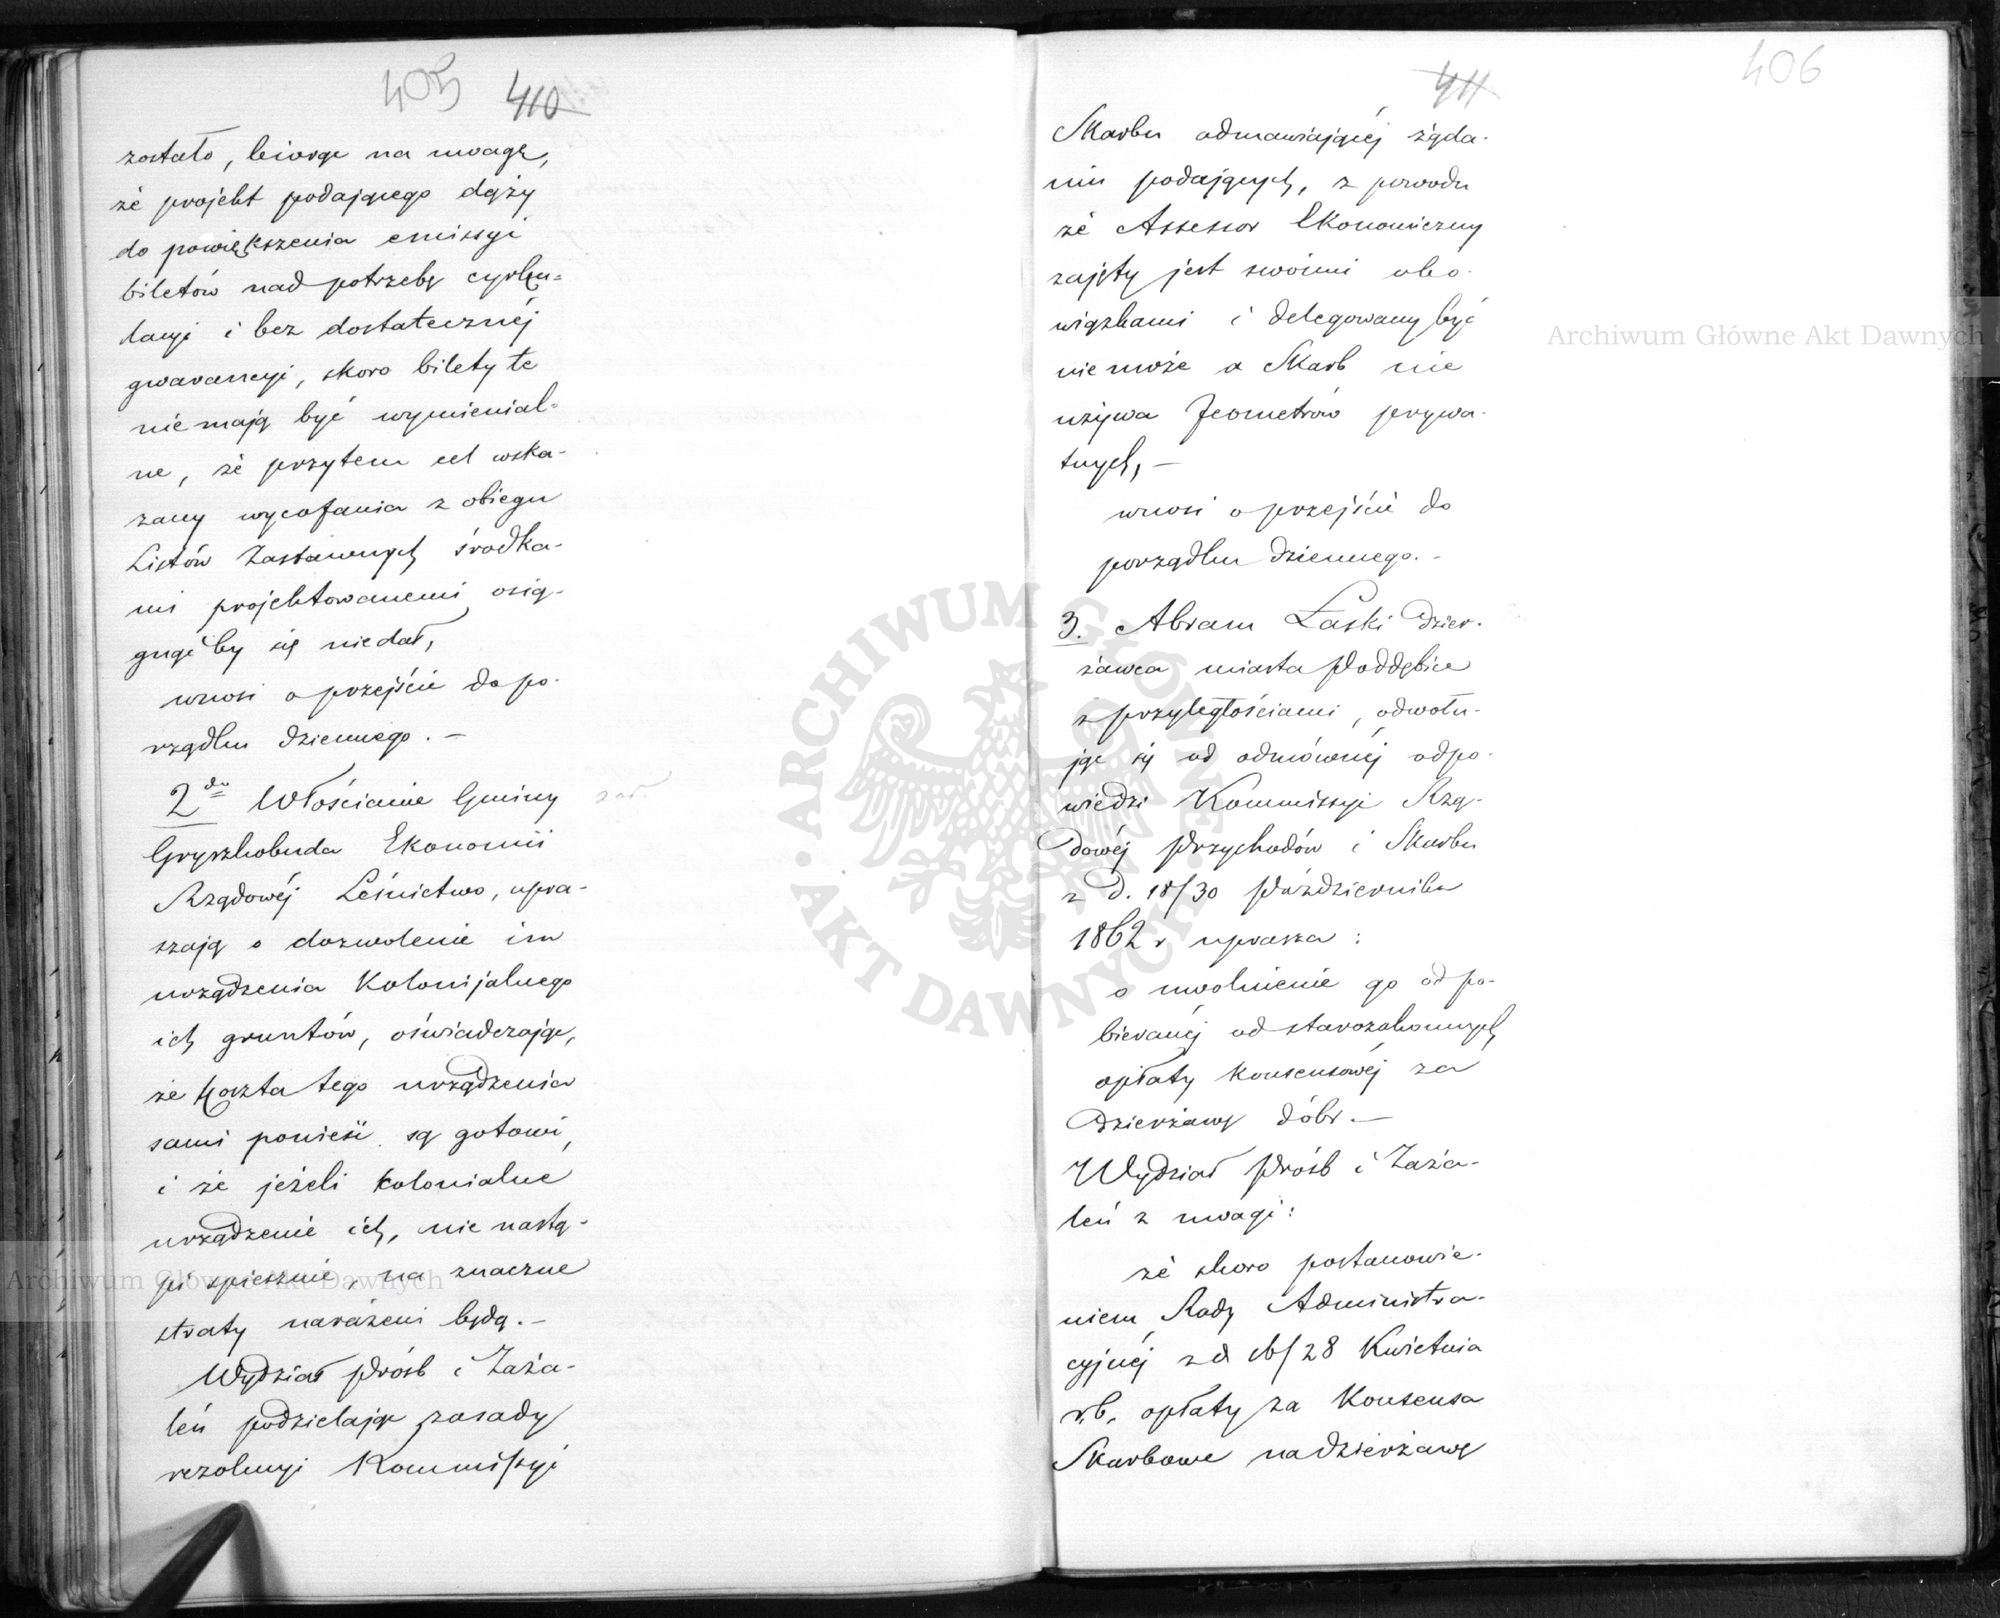 405 410
zostało, biorąc na uwagę,
że projekt podającego dąży
do powiększenia emissyi
biletów nad potrzebę cyrku=
lacyi i bez dostatecznéj
gwarancyi, skoro bilety te
nie mają być wymienial-
ne, że przytem cel wska-
zany wycofania z obiegu
Listów Zastawnych środka-
mi projektowanemi osią-
gnąć by się niedał,
wnosi o przejście do po-
rządku dziennego. —
2do Włościanie Gminy
Gryszkobuda Ekonomii
Rządowéj Leśnictwo, upra-
szają o dozwolenie im
urządzenia Kolonijalnego
ich gruntów, oświadczając,
że koszta tego urządzenia
sami ponieść są gotowi,
i że jeżeli kolonialne
urządzenie ich, nie nastą-
pi spiesznie, na znaczne
straty narażeni będą. —
Wydział Próśb i Zaża-
leń podzielając zasady
rezolucyi Kommissyi
411 406
Skarbu odmawiającéj żąda-
niu podających, z powodu
że Assessor Ekonomiczny
zajęty jest swoimi obo-
wiązkami i delegowany być
nie może a Skarb nie
używa Jeometrów prywa-
tnych, —
wnosi o przejście do
porządku dziennego. —
3. Abram Łaski Dzier-
żawca miasta Poddębice
z przyległościami, odwołu-
jąc się od odmównéj odpo-
wiedzi Kommissyi Rzą-
dowéj Przychodów i Skarbu
z d. 18/30 Października
1862 r uprasza :
o uwolnienie go od po-
bieranéj od starozakonnych
opłaty konsensowéj za
Dzierżawę dóbr. —
Wydział Próśb i Zaża-
leń z uwagi:
że skoro postanowie-
niem Rady Administra-
cyjnéj z d 16/28 Kwietnia
r.b. opłaty za Konsensa
Skarbowe na dzierżawę
Archiwum Główne Akt Dawnych
Archiwum Główne Akt Dawnych
ARCHIWUM GŁÓWNE • AKT DAWNYCH •